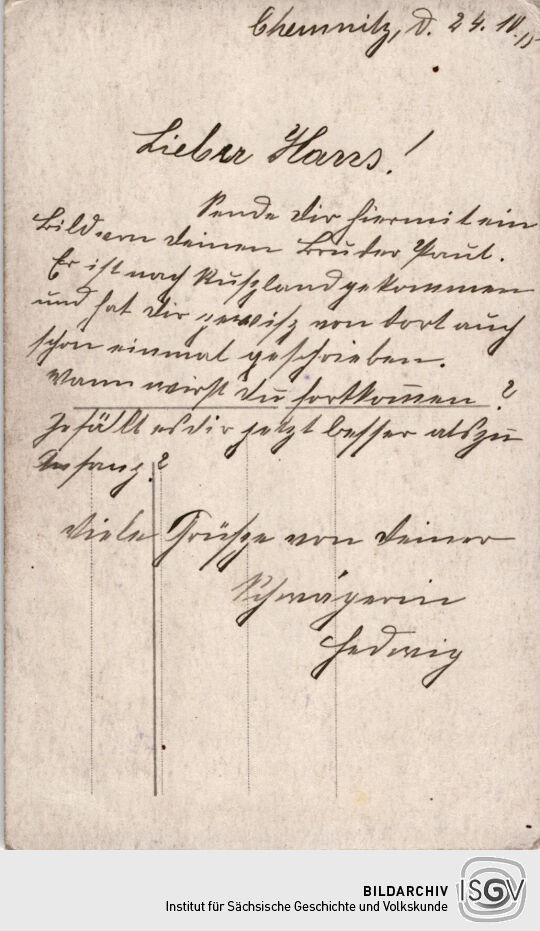 Chemnitz, d. 24. IV. 15
Lieber Hans!
Sende dir hiermit ein
Bild von deinen Bruder Paul.
Er ist nach Ruszland gekommen
und hat dir gewisz von dort auch
schon einmal geschrieben.
Wann wirst du fortkommen?
Gefällt es dir jetzt besser als zu
Anfang?
Viele Grüsze von deiner
Schwägerin
Hedwig
BILDARCHIV
Institut für Sächsische Geschichte und Volkskunde
ISGV